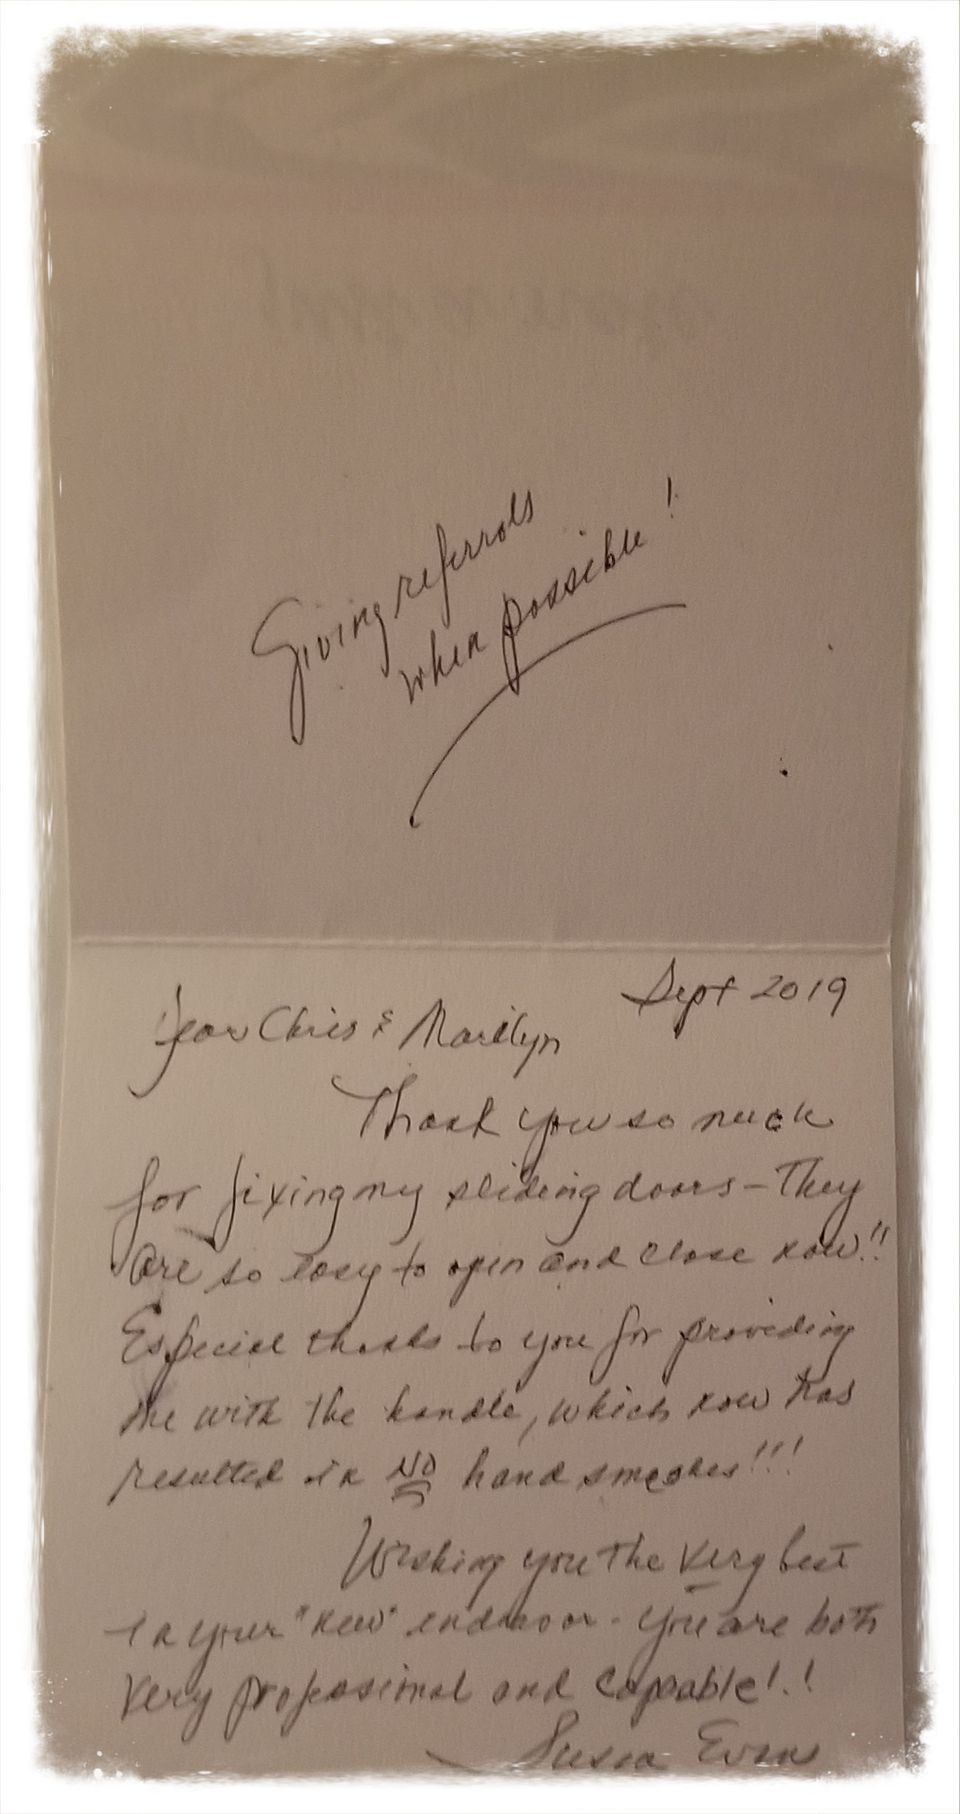 Giving referrals
when possible!
Sept 2019
Dear Chris & Marilyn
Thank you so much
for fixing my sliding doors - They
are so easy to open and close now!!
Especial thanks to you for providing
me with the handle, which now has
resulted in NO hand smashes!!!
Wishing you the very best
in your "new" endeavor - you are both
very professional and capable!!
Susan Evans